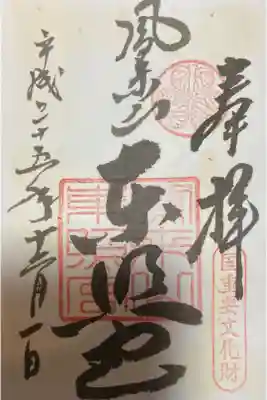 奉拝
国重要文化財
鳳来山
東照宮
平成二十五年十二月一日